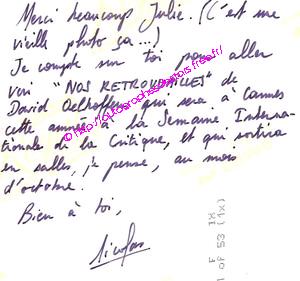 Merci beaucoup Julie. (C'est une
vieille photo ça...)
Je compte sur toi pour aller
voir "NOS RETROUVAILLES" de
David Oelhoffen qui sera à Cannes
cette année à la Semaine Interna-
tionale de la Critique, et qui sortira
en salles, je pense, au mois
d'octobre.
Bien à toi,
Nicolas
F IX
1 of 53 (1x)